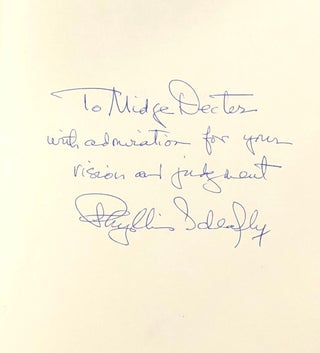 To Midge Decter
with admiration for your
vision and judgment
Phyllis Schlafly